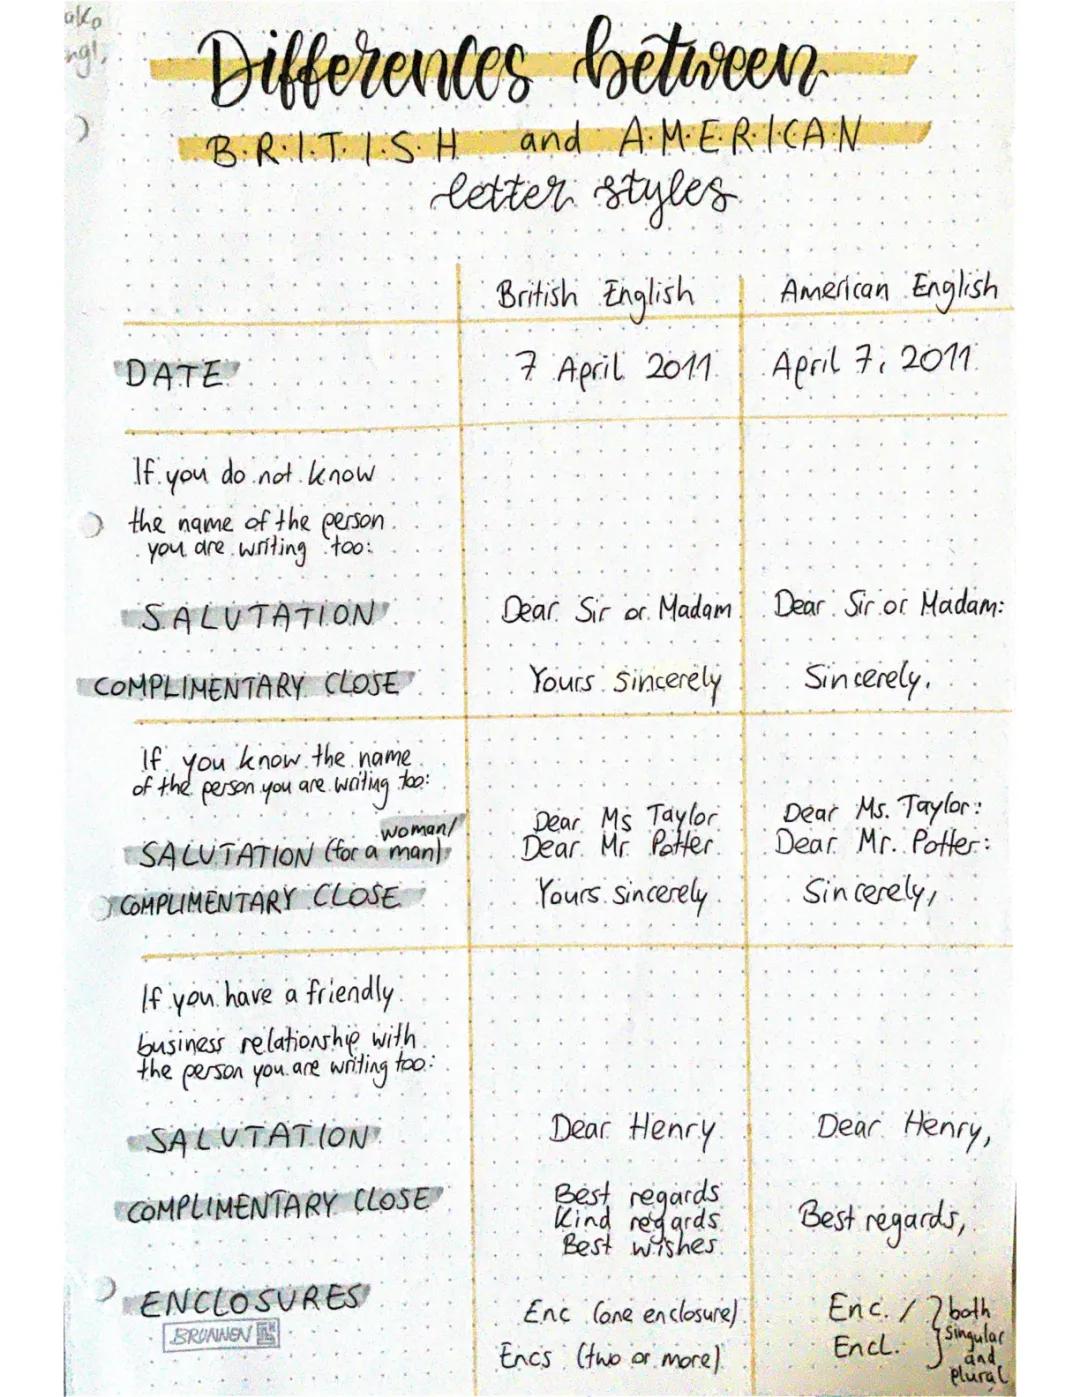 Differences between
B.R.I.T.I.S.H and A.M.E.R.I.C.A.N
letter styles
British English American English
DATE 7 April 2011 April 7, 2011
If you do not know
the name of the person
you are writing too:
SALUTATION Dear Sir or Madam Dear Sir or Madam:
COMPLIMENTARY CLOSE Yours sincerely Sincerely,
If you know the name
of the person you are writing too:
woman/
SALUTATION (for a man): Dear Ms Taylor Dear Ms. Taylor:
Dear Mr Potter Dear Mr. Potter:
COMPLIMENTARY CLOSE Yours sincerely Sincerely,
If you have a friendly
business relationship with
the person you are writing too:
SALUTATION Dear Henry Dear Henry,
COMPLIMENTARY CLOSE Best regards
Kind regards Best regards,
Best wishes
ENCLOSURES Enc (one enclosure) Enc. / } both
Encs (two or more) Encl. singular
and
plural
BRUNNEN